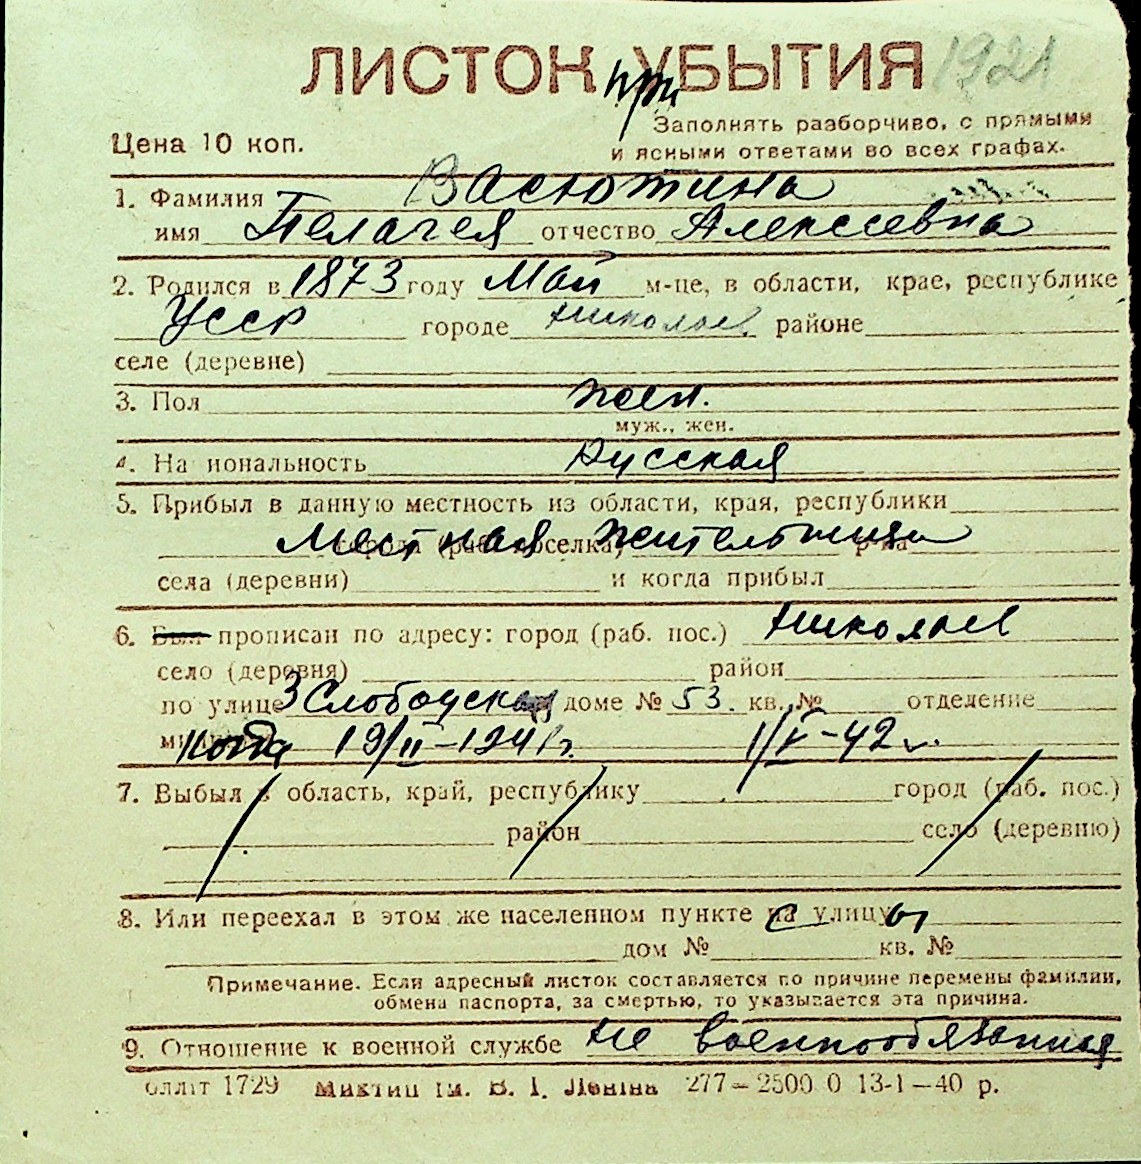 ЛИСТОК УБЫТИЯ 1921
при
Заполнять разборчиво, с прямыми
Цена 10 коп. и ясными ответами во всех графах.
1. Фамилия Васютина
имя Пелагея отчество Алексеевна
2. Родился в 1873 году Май м-це, в области, крае, республике
Усср городе Николаев районе
селе (деревне)
3. Пол жен.
муж., жен.
4. На иональность Русская
5. Прибыл в данную местность из области, края, республики
Местная жительница
города (раб. поселка) р-на
села (деревни) и когда прибыл
6. Был прописан по адресу: город (раб. пос.) Николаев
село (деревня) район
по улице 3 Слободская доме № 53. кв. № отделение
когда 19/II-1941г. 1/V-42 г.
7. Выбыл в область, край, республику город (раб. пос.)
район село (деревню)
8. Или переехал в этом же населенном пункте на улицу
дом № кв. №
Примечание. Если адресный листок составляется по причине перемены фамилии,
обмена паспорта, за смертью, то указывается эта причина.
9. Отношение к военной службе не военнообязанная
блліт 1729 Миктип ім. В. І. Леніна 277—2500 0 13-1—40 р.